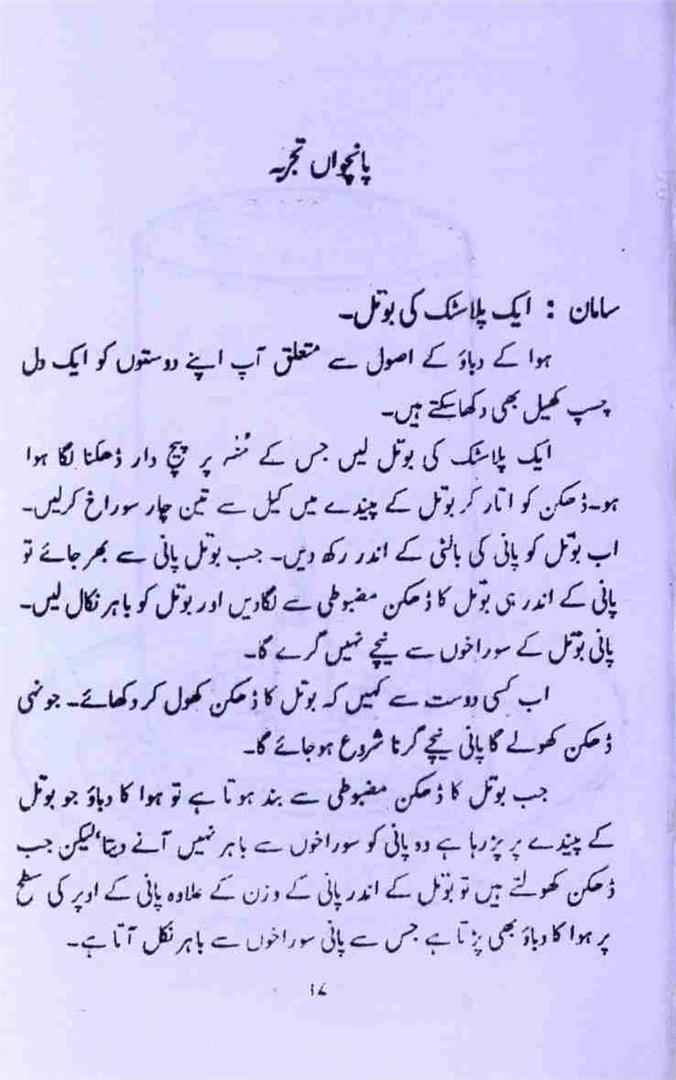 پانچواں تجربہ
سامان : ایک پلاسٹک کی بوتل۔
ہوا کے دباؤ کے اصول سے متعلق آپ اپنے دوستوں کو ایک دل
چسپ کھیل بھی دکھا سکتے ہیں۔
ایک پلاسٹک کی بوتل لیں جس کے مُنہ پر پیچ دار ڈھکنا لگا ہوا
ہو۔ ڈھکن کو اتار کر بوتل کے پیندے میں کیل سے تین چار سوراخ کرلیں۔
اب بوتل کو پانی کی بالٹی کے اندر رکھ دیں۔ جب بوتل پانی سے بھر جائے تو
پانی کے اندر ہی بوتل کا ڈھکن مضبوطی سے لگادیں اور بوتل کو باہر نکال لیں۔
پانی بوتل کے سوراخوں سے نیچے نہیں گرے گا۔
اب کسی دوست سے کہیں کہ بوتل کا ڈھکن کھول کر دکھائے۔ جونہی
ڈھکن کھولے گا پانی نیچے گرنا شروع ہوجائے گا۔
جب بوتل کا ڈھکن مضبوطی سے بند ہوتا ہے تو ہوا کا دباؤ جو بوتل
کے پیندے پر پڑ رہا ہے وہ پانی کو سوراخوں سے باہر نہیں آنے دیتا، لیکن جب
ڈھکن کھولتے ہیں تو بوتل کے اندر پانی کے وزن کے علاوہ پانی کے اوپر کی سطح
پر ہوا کا دباؤ بھی پڑتا ہے جس سے پانی سوراخوں سے باہر نکل آتا ہے۔
۱۷